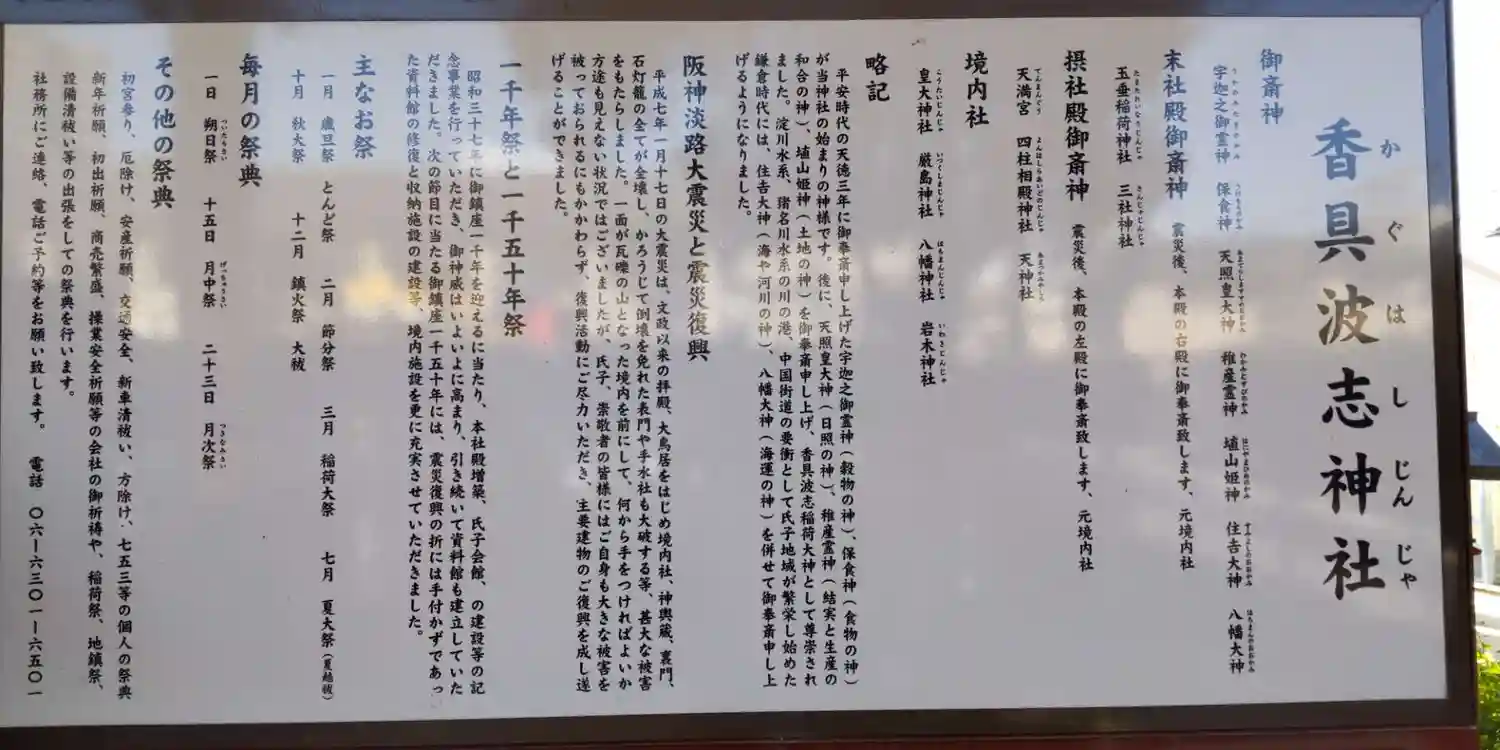 香具波志神社
かぐはしじんじゃ
御斎神
宇迦之御霊神 保食神 天照皇大神 稚産霊神 埴山姫神 住吉大神 八幡大神
末社殿御斎神 震災後、本殿の右殿に御奉斎致します、元境内社
玉垂稲荷神社 三社神社
たまたれいなりじんじゃ さんじゃじんじゃ
摂社殿御斎神 震災後、本殿の左殿に御奉斎致します、元境内社
天満宮 四柱相殿神社 天神社
てんまんぐう よんはしらあいどのじんじゃ あまつかみやしろ
境内社
皇大神社 厳島神社 八幡神社 岩木神社
こうたいじんじゃ いつくしまじんじゃ はちまんじんじゃ いわきじんじゃ
略記
平安時代の天徳三年に御奉斎申し上げた宇迦之御霊神(穀物の神)、保食神(食物の神)
が当神社の始まりの神様です。後に、天照皇大神(日照の神)、稚産霊神(結実と生産の
和合の神)、埴山姫神(土地の神)を御奉斎申し上げ、香具波志稲荷大神として尊崇され
ました。淀川水系、猪名川水系の川の港、中国街道の要衝として氏子地域が繁栄し始めた
鎌倉時代には、住吉大神(海や河川の神)、八幡大神(海運の神)を併せて御奉斎申し上
げるようになりました。
阪神淡路大震災と震災復興
平成七年一月十七日の大震災は、文政以来の拝殿、大鳥居をはじめ境内社、神輿蔵、裏門、
石灯籠の全てが全壊し、かろうじて倒壊を免れた表門や手水社も大破する等、甚大な被害
をもたらしました。一面が瓦礫の山となった境内を前にして、何から手をつければよいか
方途も見えない状況ではございましたが、氏子、崇敬者の皆様にはご自身も大きな被害を
被っておられるにもかかわらず、復興活動にご尽力いただき、主要建物のご復興を成し遂
げることができました。
一千年祭と一千五十年祭
昭和三十七年に御鎮座一千年を迎えるに当たり、本社殿増築、氏子会館、の建設等の記
念事業を行っていただき、御神威はいよいよに高まり、引き続いて資料館も建立していた
だきました。次の節目に当たる御鎮座一千五十年には、震災復興の折には手付かずであっ
た資料館の修復と収納施設の建設等、境内施設を更に充実させていただきました。
主なお祭
一月 歳旦祭 とんど祭 二月 節分祭 三月 稲荷大祭 七月 夏大祭(夏越祓)
十月 秋大祭 十二月 鎮火祭 大祓
毎月の祭典
一日 朔日祭 十五日 月中祭 二十三日 月次祭
ついたちさい げっちゅうさい つきなみさい
その他の祭典
初宮参り、厄除け、安産祈願、交通安全、新車清祓い、方除け、七五三等の個人の祭典
新年祈願、初出祈願、商売繁盛、操業安全祈願等の会社の御祈祷や、稲荷祭、地鎮祭、
設備清祓い等の出張をしての祭典を行います。
社務所にご連絡、電話ご予約等をお願い致します。 電話 〇六ー六三〇一ー六五〇一